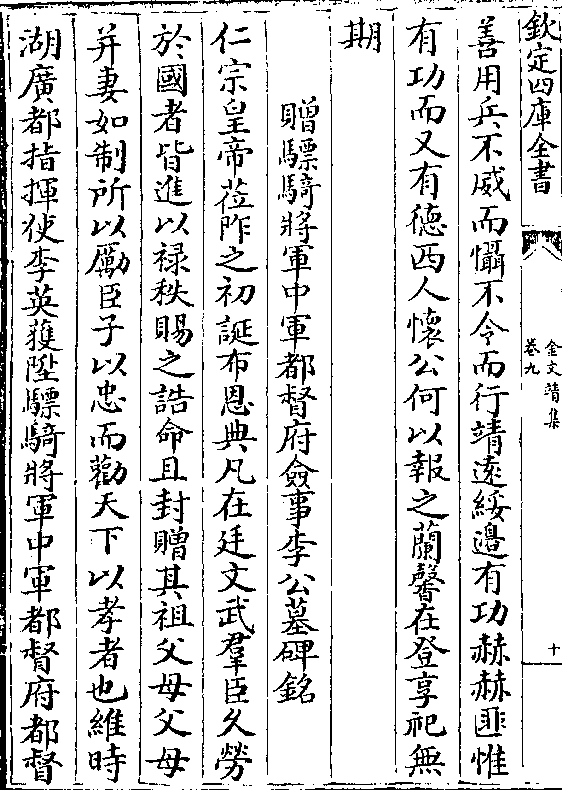 欽定四庫全書
金文靖集
卷九
十
善用兵不威而懾不令而行靖遠綏邊有功赫赫匪惟
有功而又有德西人懷公何以報之蘭馨在登享祀無
期
贈驃騎將軍中軍都督府僉事李公墓碑銘
仁宗皇帝蒞阼之初誕布恩典凡在廷文武羣臣久勞
於國者皆進以祿秩賜之誥命且封贈其祖父母父母
并妻如制所以勵臣子以忠而勸天下以孝者也維時
湖廣都指揮使李英獲陞驃騎將軍中軍都督府都督